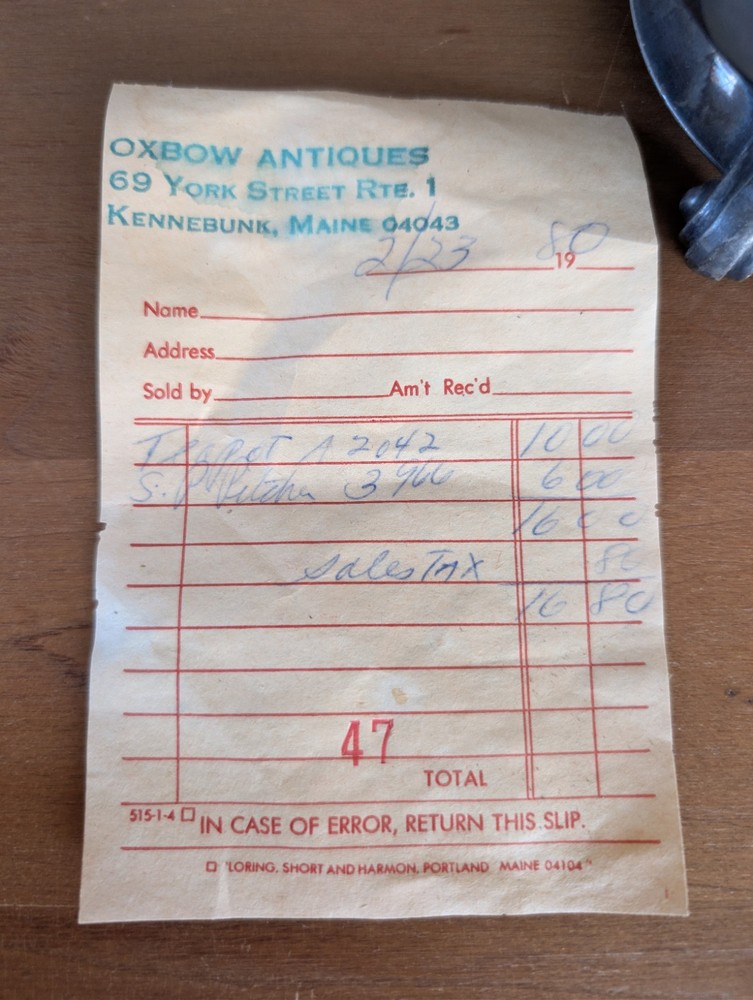 OXBOW ANTIQUES
69 YORK STREET RTE. 1
KENNEBUNK, MAINE 04043
2/23 19 80
Name
Address
Sold by Am't Rec'd
Teapot A 2042 10 00
S.P. Pitcher 3966 6 00
16 00
Sales Tax 80
16 80
47
TOTAL
515-1-4 IN CASE OF ERROR, RETURN THIS SLIP.
"LORING, SHORT AND HARMON, PORTLAND MAINE 04104"